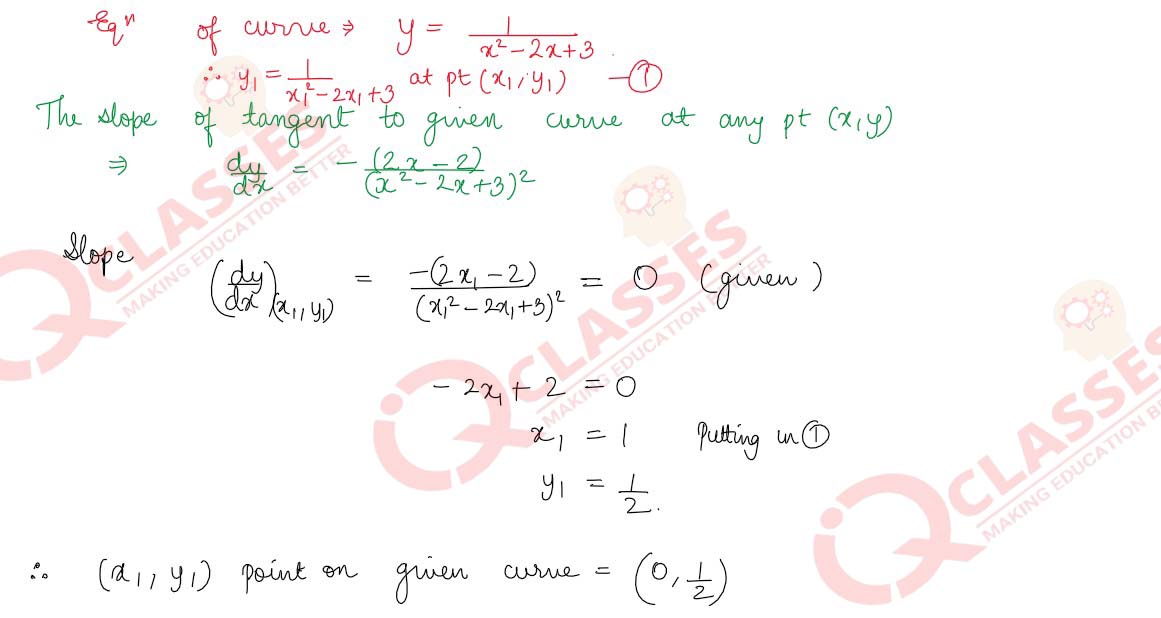 Eqⁿ of curve ⇒ y = 1/(x² - 2x + 3)
∴ y₁ = 1/(x₁² - 2x₁ + 3) at pt (x₁, y₁) —①
The slope of tangent to given curve at any pt (x, y)
⇒ dy/dx = - (2x - 2)/(x² - 2x + 3)²
Slope
(dy/dx)(x₁, y₁) = -(2x₁ - 2)/(x₁² - 2x₁ + 3)² = 0 (given)
- 2x₁ + 2 = 0
x₁ = 1 Putting in ①
y₁ = 1/2.
∴ (x₁, y₁) point on given curve = (0, 1/2)
IQ CLASSES
MAKING EDUCATION BETTER
IQ CLASSES
MAKING EDUCATION BETTER
IQ CLASSES
MAKING EDUCATION BETTER